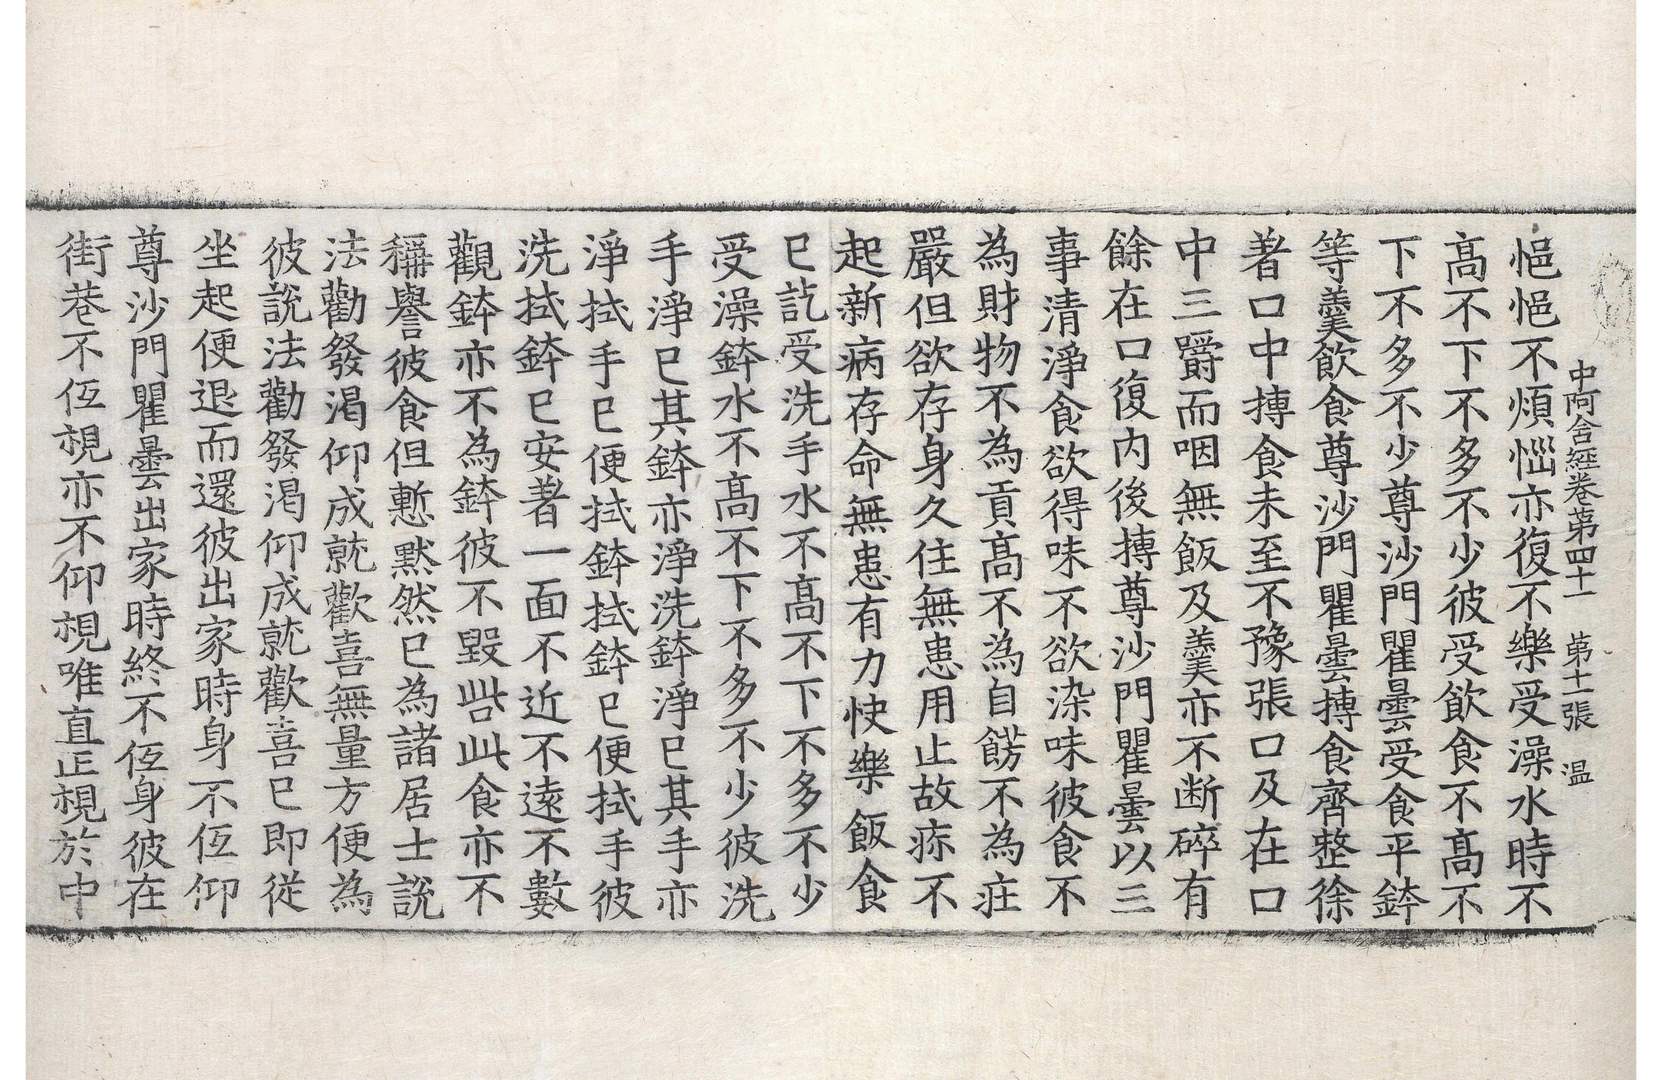 中阿含經卷第四十一　第十一張　温
悒悒不煩惱亦復不樂受澡水時不
高不下不多不少彼受飲食不高不
下不多不少尊沙門瞿曇受食平鉢
等羹飲食尊沙門瞿曇摶食齊整徐
著口中摶食未至不豫張口及在口
中三嚼而咽無飯及羹亦不断碎有
餘在口復内後摶尊沙門瞿曇以三
事清淨食欲得味不欲染味彼食不
為財物不為貢高不為自餝不為疘
嚴但欲存身久住無患用止故疹不
起新病存命無患有力快樂飯食
已訖受洗手水不高不下不多不少
受澡鉢水不高不下不多不少彼洗
手淨已其鉢亦淨洗鉢淨已其手亦
淨拭手已便拭鉢拭鉢已便拭手彼
洗拭鉢已安著一面不近不遠不數
觀鉢亦不為鉢彼不毀呰此食亦不
稱譽彼食但慙黙然已為諸居士說
法勸發渴仰成就歡喜無量方便為
彼說法勸發渴仰成就歡喜已即從
坐起便退而還彼出家時身不伍仰
尊沙門瞿曇出家時終不伍身彼在
街巷不伍視亦不仰視唯直正視於中